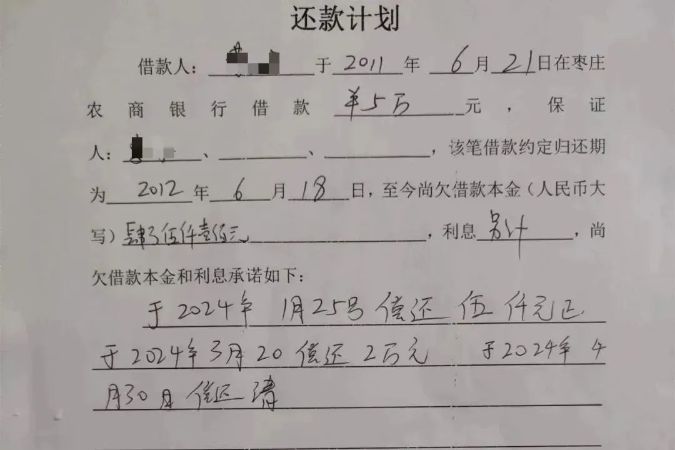 还款计划
借款人：于2011年6月21日在枣庄
农商银行借款￥5万元，保证
人：、、，该笔借款约定归还期
为2012年6月18日，至今尚欠借款本金（人民币大
写）肆万伍仟壹佰元，利息另计，尚
欠借款本金和利息承诺如下：
于2024年1月25号偿还伍仟元正
于2024年3月20偿还2万元 于2024年4
月30日偿还清